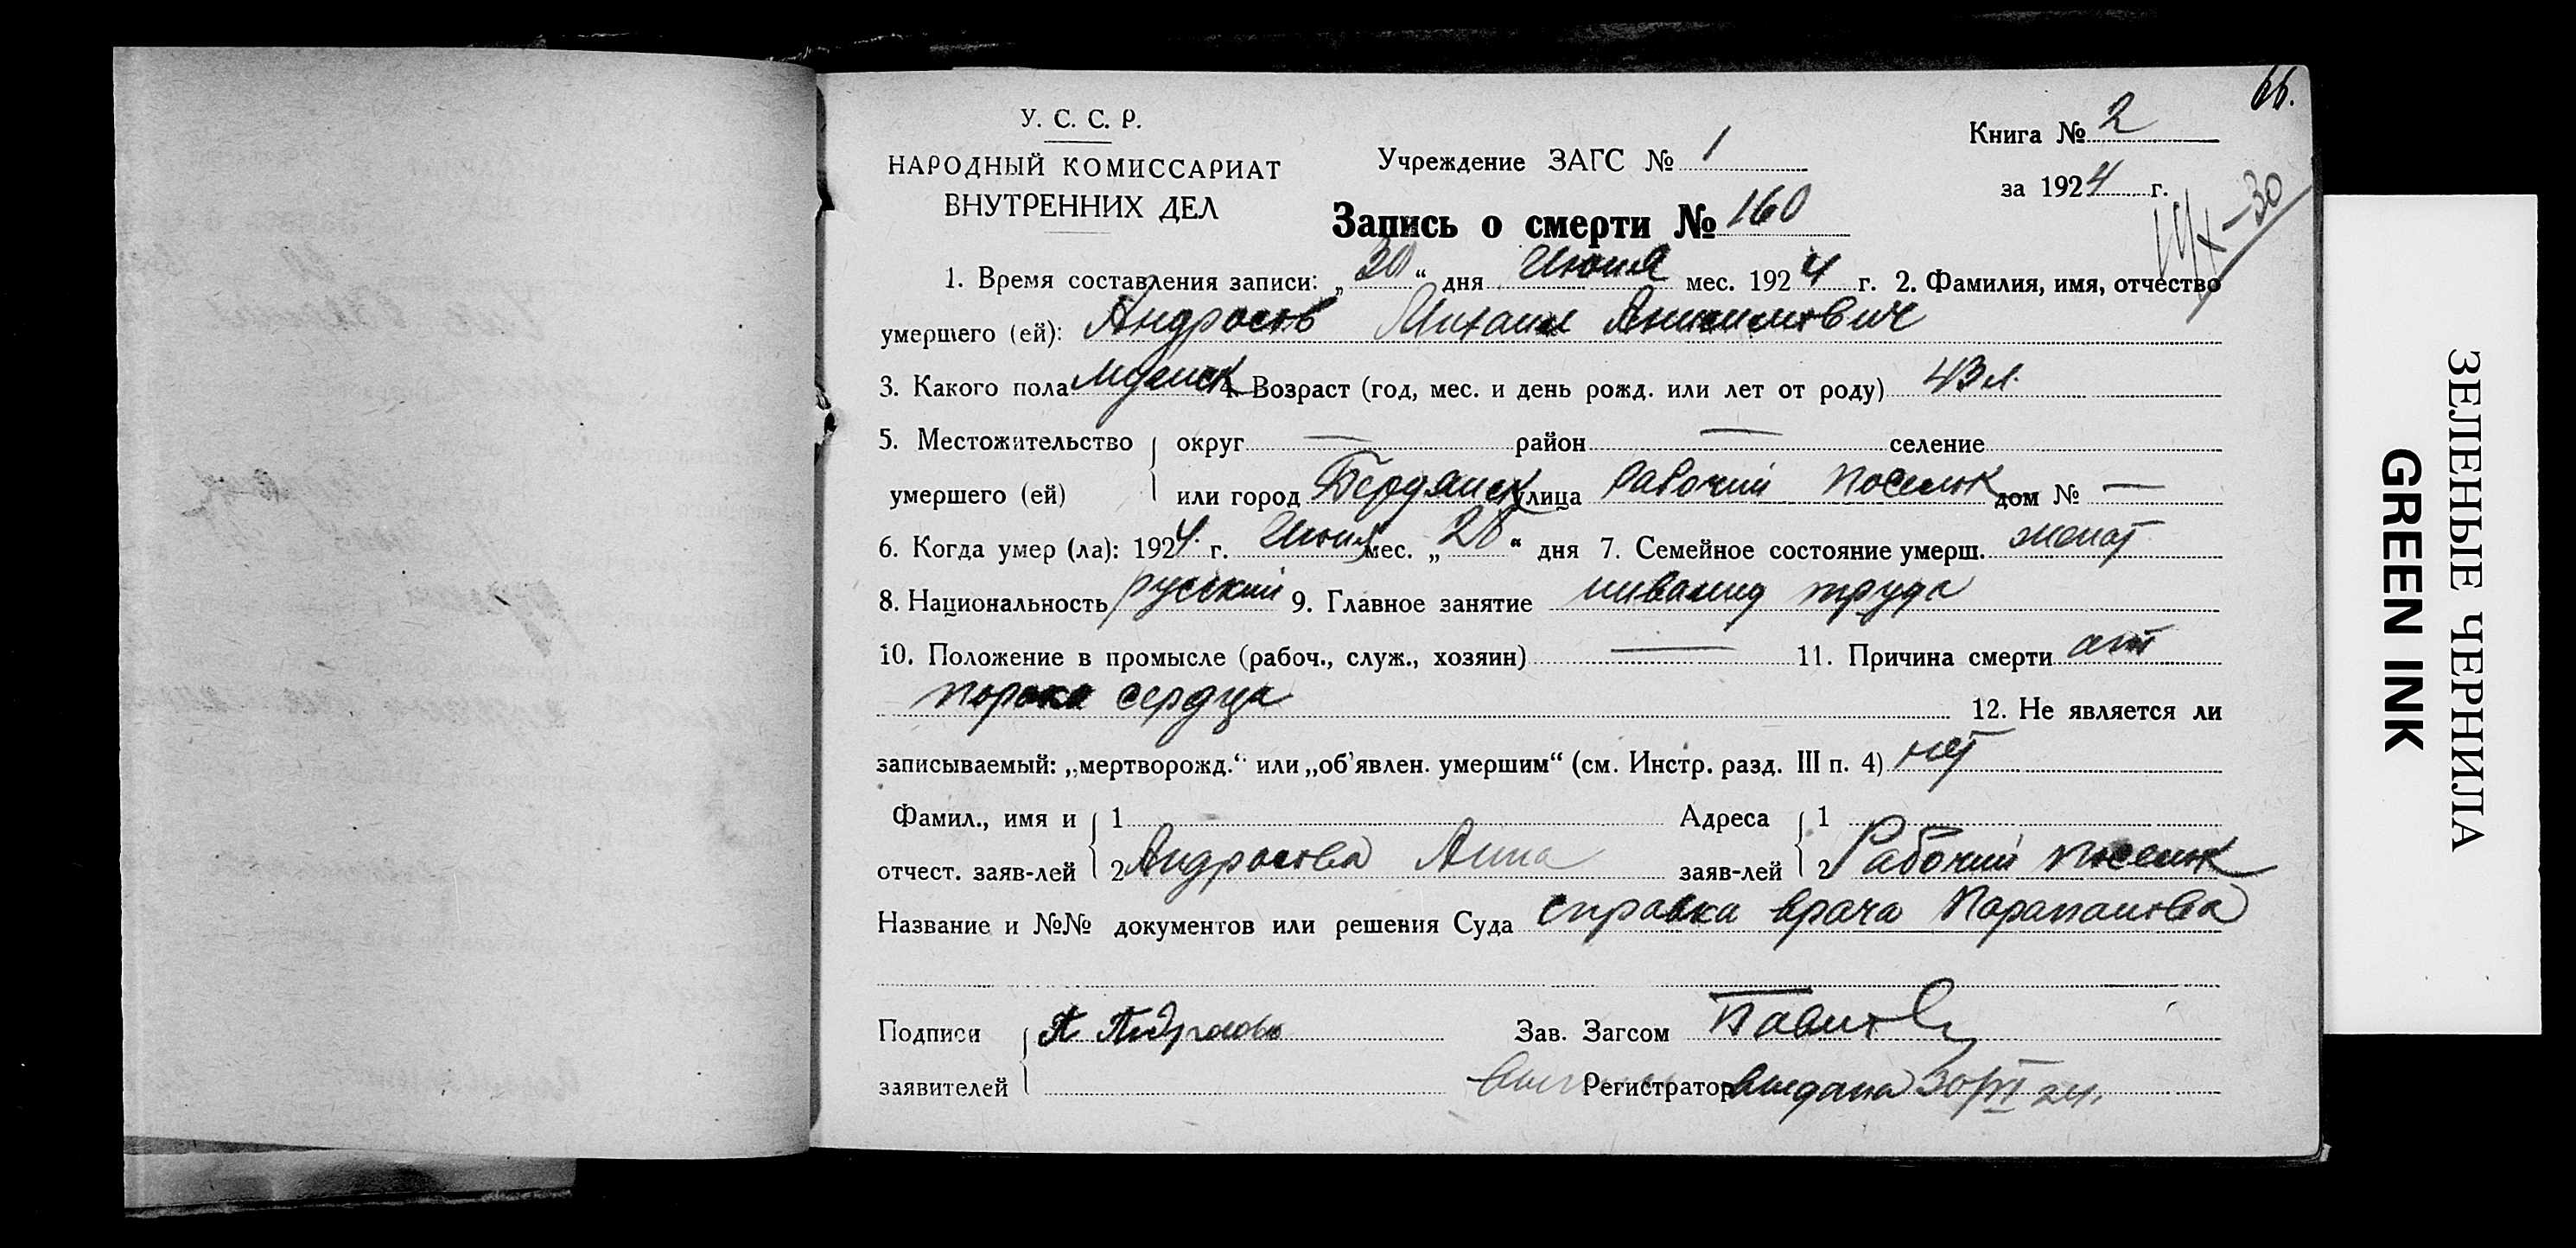 66.
У. С. С. Р.
НАРОДНЫЙ КОМИССАРИАТ
ВНУТРЕННИХ ДЕЛ
Учреждение ЗАГС № 1
Книга № 2
за 1924 г.
Запись о смерти № 160
1. Время составления записи: „30“ дня Июня мес. 1924 г. 2. Фамилия, имя, отчество
умершего (ей): Андросов Михаил Анисимович
3. Какого пола мужск 4. Возраст (год, мес. и день рожд. или лет от роду) 43 л.
5. Местожительство округ — район — селение
умершего (ей) или город Бердянск улица Рабочий поселок дом № —
6. Когда умер (ла): 1924 г. Июня мес. „28“ дня 7. Семейное состояние умерш. женат
8. Национальность русский 9. Главное занятие инвалид труда
10. Положение в промысле (рабоч., служ., хозяин) — 11. Причина смерти от
порока сердца 12. Не является ли
записываемый: „мертворожд.“ или „об'явлен. умершим“ (см. Инстр. разд. III п. 4) нет
Фамил., имя и 1 Адреса 1
отчест. заяв-лей 2 Андросова Анна заяв-лей 2 Рабочий поселок
Название и №№ документов или решения Суда справка врача
Подписи А Андросова Зав. Загсом
заявителей Регистратор выдана 30/VI 24.
ЗЕЛЕНЫЕ ЧЕРНИЛА
GREEN INK